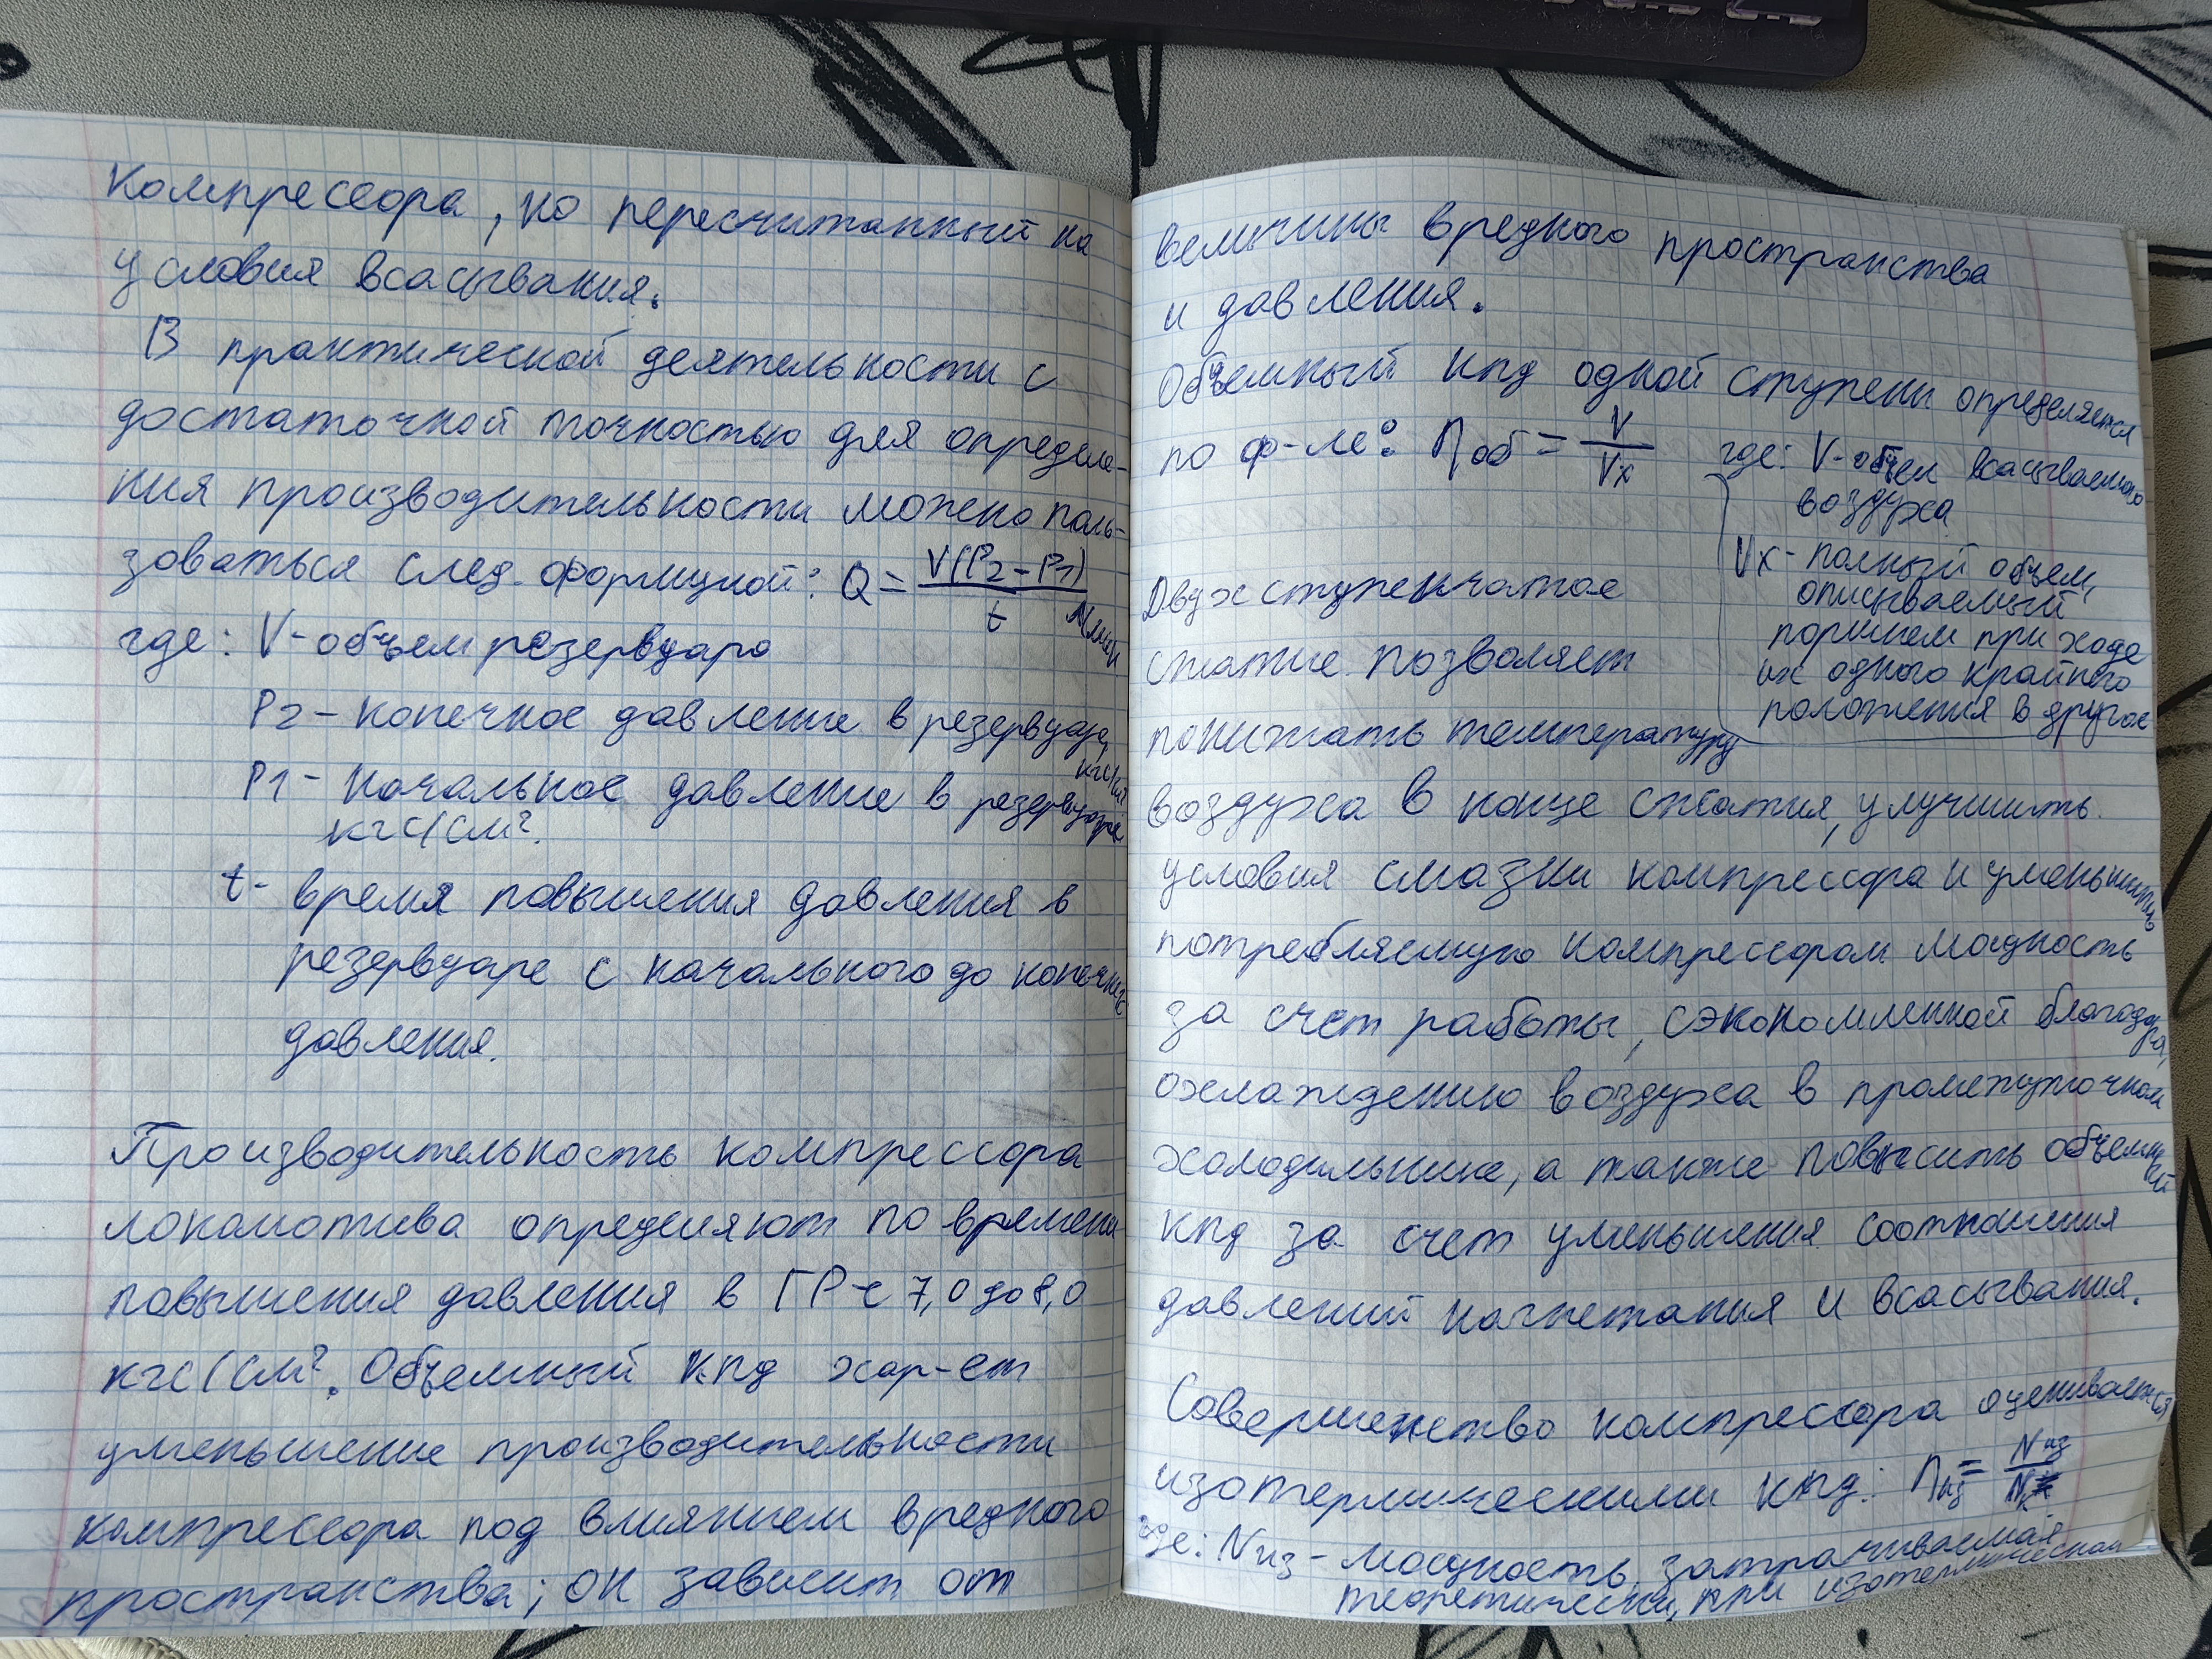 компрессора, но пересчитанный на
условия всасывания.
В практической деятельности с
достаточной точностью для определе-
ния производительности можно поль-
зоваться след. формулой: Q = V(P2 - P1) / t
где: V - объем резервуара
P2 - конечное давление в резервуаре,
P1 - начальное давление в резервуаре
кгс/см².
t - время повышения давления в
резервуаре с начального до конечного
давления.
Производительность компрессора
локомотива определяют по времени
повышения давления в ГР с 7,0 до 8,0
кгс/см². Объемный кпд хар-ет
уменьшение производительности
компрессора под влиянием вредного
пространства; он зависит от
величины вредного пространства
и давления.
Объемный кпд одной ступени определяется
по ф-ле: ηоб = V / Vх где: V - объем всасываемого
воздуха
Vх - полный объем,
описываемый
поршнем при ходе
их одного крайнего
положения в другое
Двухступенчатое
сжатие позволяет
понижать температуру
воздуха в конце сжатия, улучшить
условия смазки компрессора и уменьшить
потребляемую компрессором мощность
за счет работы, сэкономленной благодаря,
охлаждению воздуха в промежуточном
холодильнике, а также повысить объемный
кпд за счет уменьшения соотношения
давлений нагнетания и всасывания.
Совершенство компрессора оценивается
изотермическими кпд: ηиз = Nиз / Nк
где: Nиз - мощность, затрачиваемая
теоретически, при изотермическом